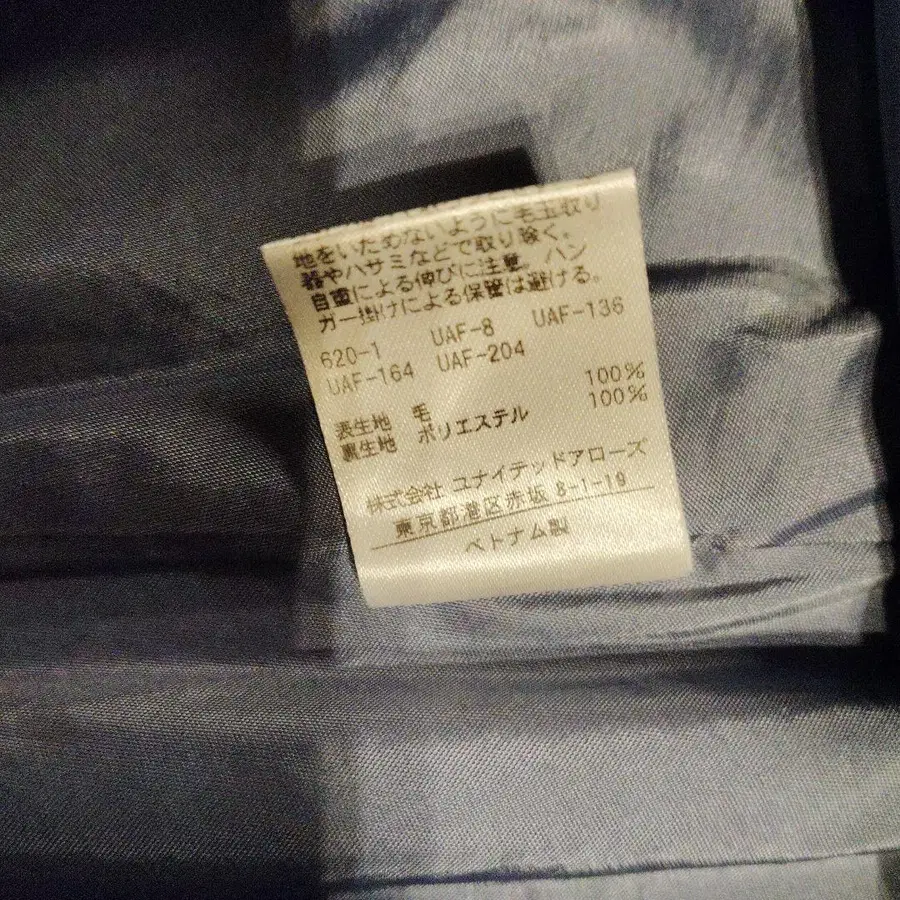 地をいためないように毛玉取り
器やハサミなどで取り除く。
自重による伸びに注意。ハン
ガー掛けによる保管は避ける。
620-1 UAF-8 UAF-136
UAF-164 UAF-204
表生地 毛 100%
裏生地 ポリエステル 100%
株式会社 ユナイテッドアローズ
東京都港区赤坂 8-1-19
ベトナム製